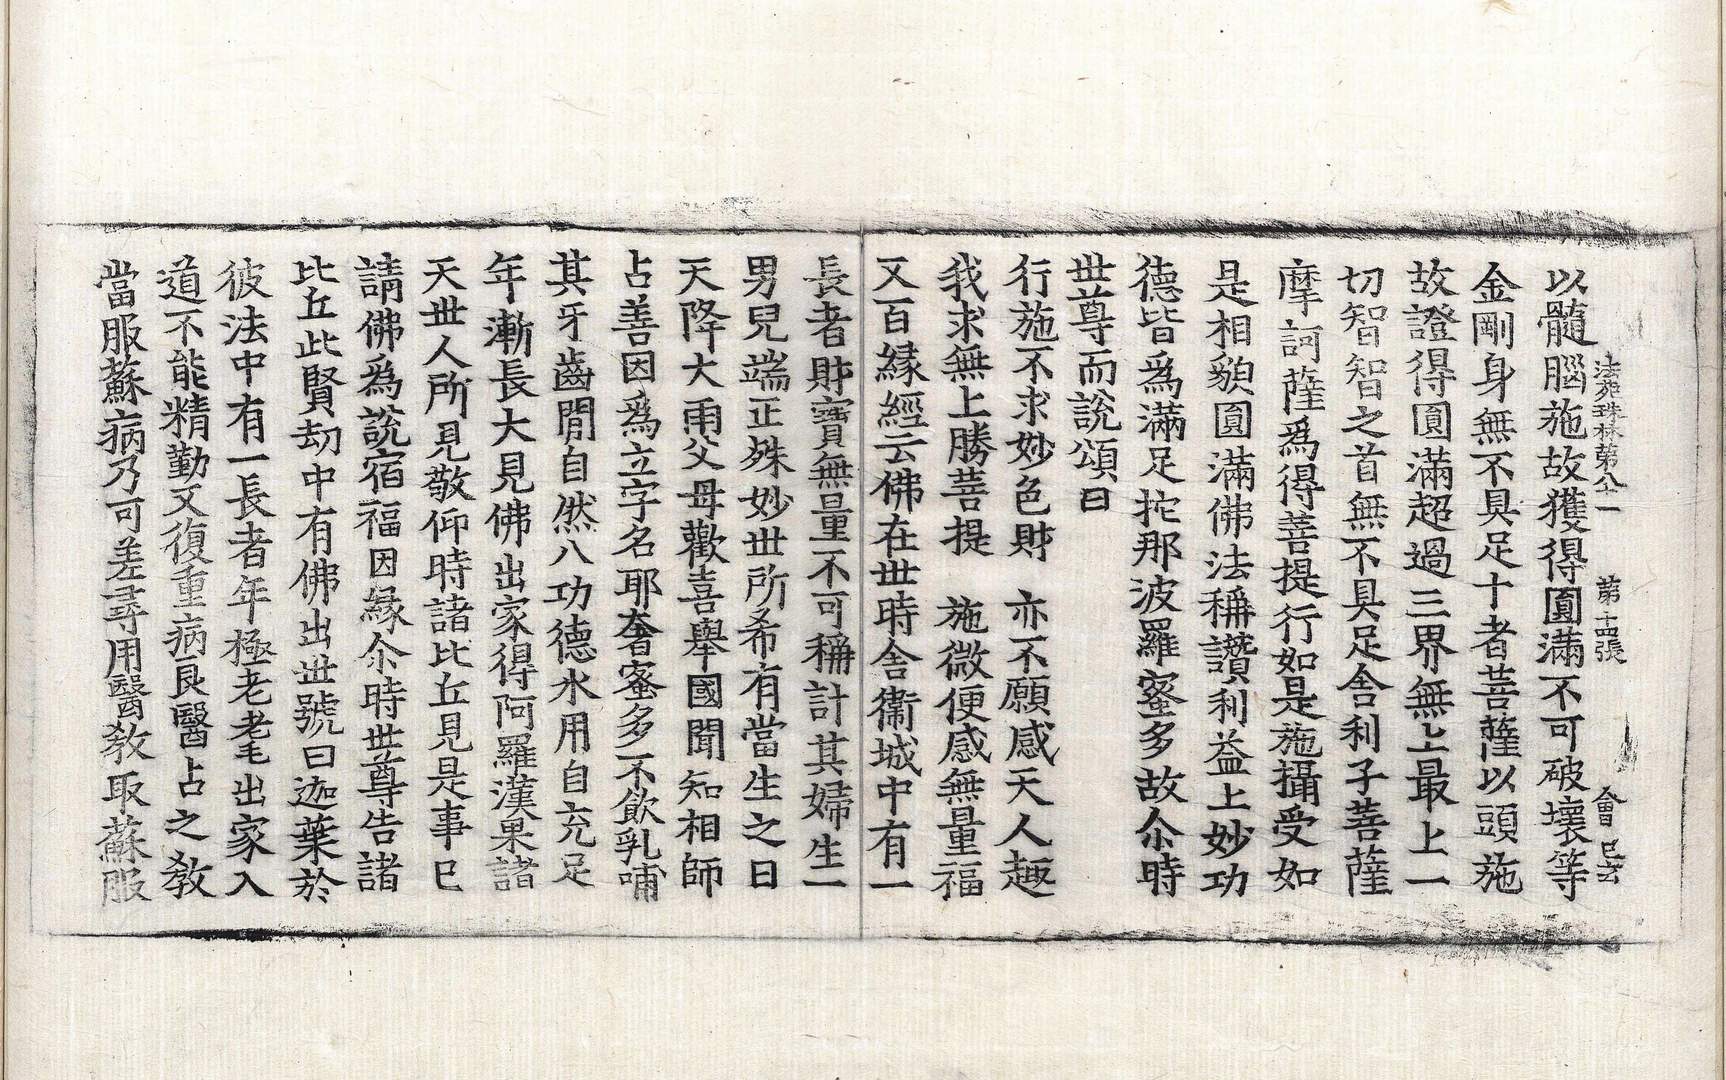 法苑珠林第八十一　第十四張　會　已玄
以髓腦施故獲得圓滿不可破壞等
金剛身無不具足十者菩薩以頭施
故證得圓滿超過三界無上最上一
切智智之首無不具足舍利子菩薩
摩訶薩爲得菩提行如是施攝受如
是相䫉圓滿佛法稱讚利益上妙功
德皆爲滿足拕那波羅蜜多故尒時
世尊而說頌曰
行施不求妙色財　亦不願感天人趣
我求無上勝菩提　施微便感無量福
又百緣經云佛在世時舍衞城中有一
長者財寶無量不可稱計其婦生一
男兒端正殊妙世所希有當生之日
天降大雨父母歡喜舉國聞知相師
占善因爲立字名耶奢蜜多不飲乳哺
其牙齒閒自然八功德水用自充足
年漸長大見佛出家得阿羅漢果諸
天世人所見敬仰時諸比丘見是事已
請佛爲說宿福因緣尒時世尊告諸
比丘此賢劫中有佛出世號曰迦葉於
彼法中有一長者年極老耄出家入
道不能精勤又復重病良醫占之教
當服蘇病乃可差尋用醫教取蘇服